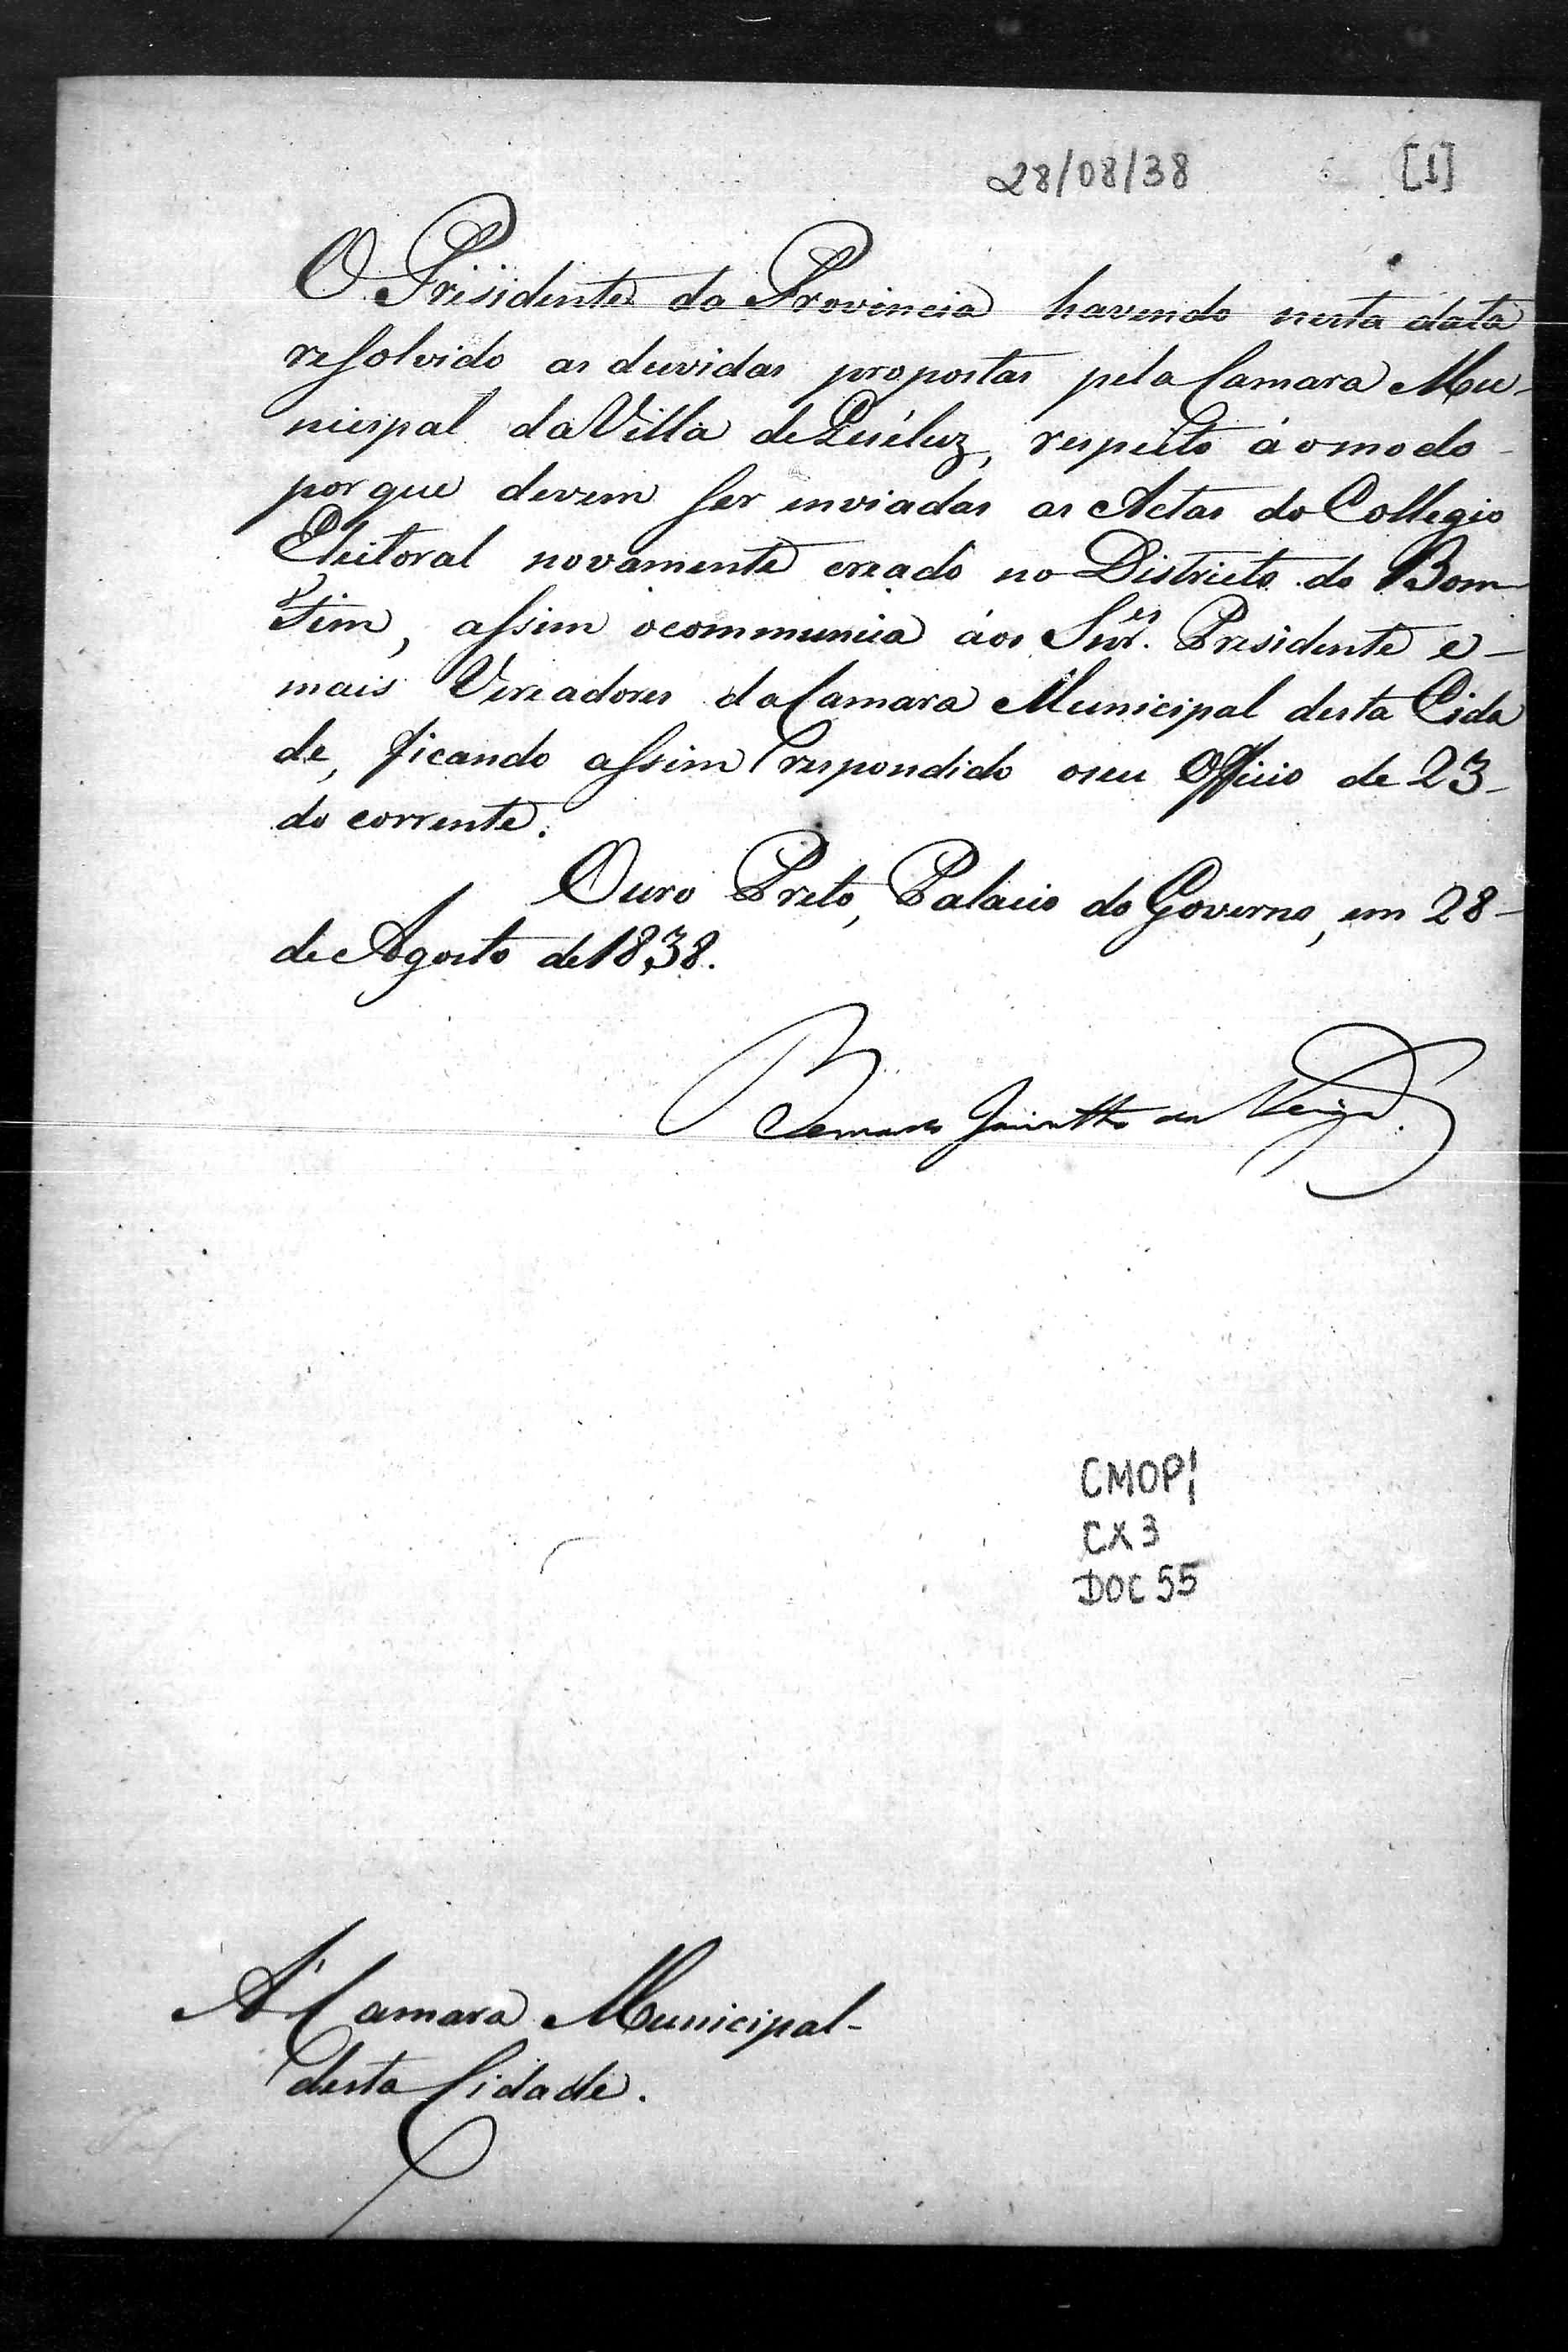 28/08/38 [1]
O Presidente da Provincia havendo nesta data
resolvido as duvidas propostas pela Camara Mu-
nicipal da Villa de Queluz, respeito áo modo
porque devem ser enviadas as Actas do Collegio
Eleitoral novamente creado no Districto do Bom
fim, assim o communica áos Snr.es Presidente e
mais Vereadores da Camara Municipal desta Cida
de, ficando assim respondido o seu Officio de 23
do corrente.
Ouro Preto, Palacio do Governo, em 28
de Agosto de 1838.
Bernardo Jacintho da Veiga
CMOP1
CX3
DOC 55
A' Camara Municipal
desta Cidade.